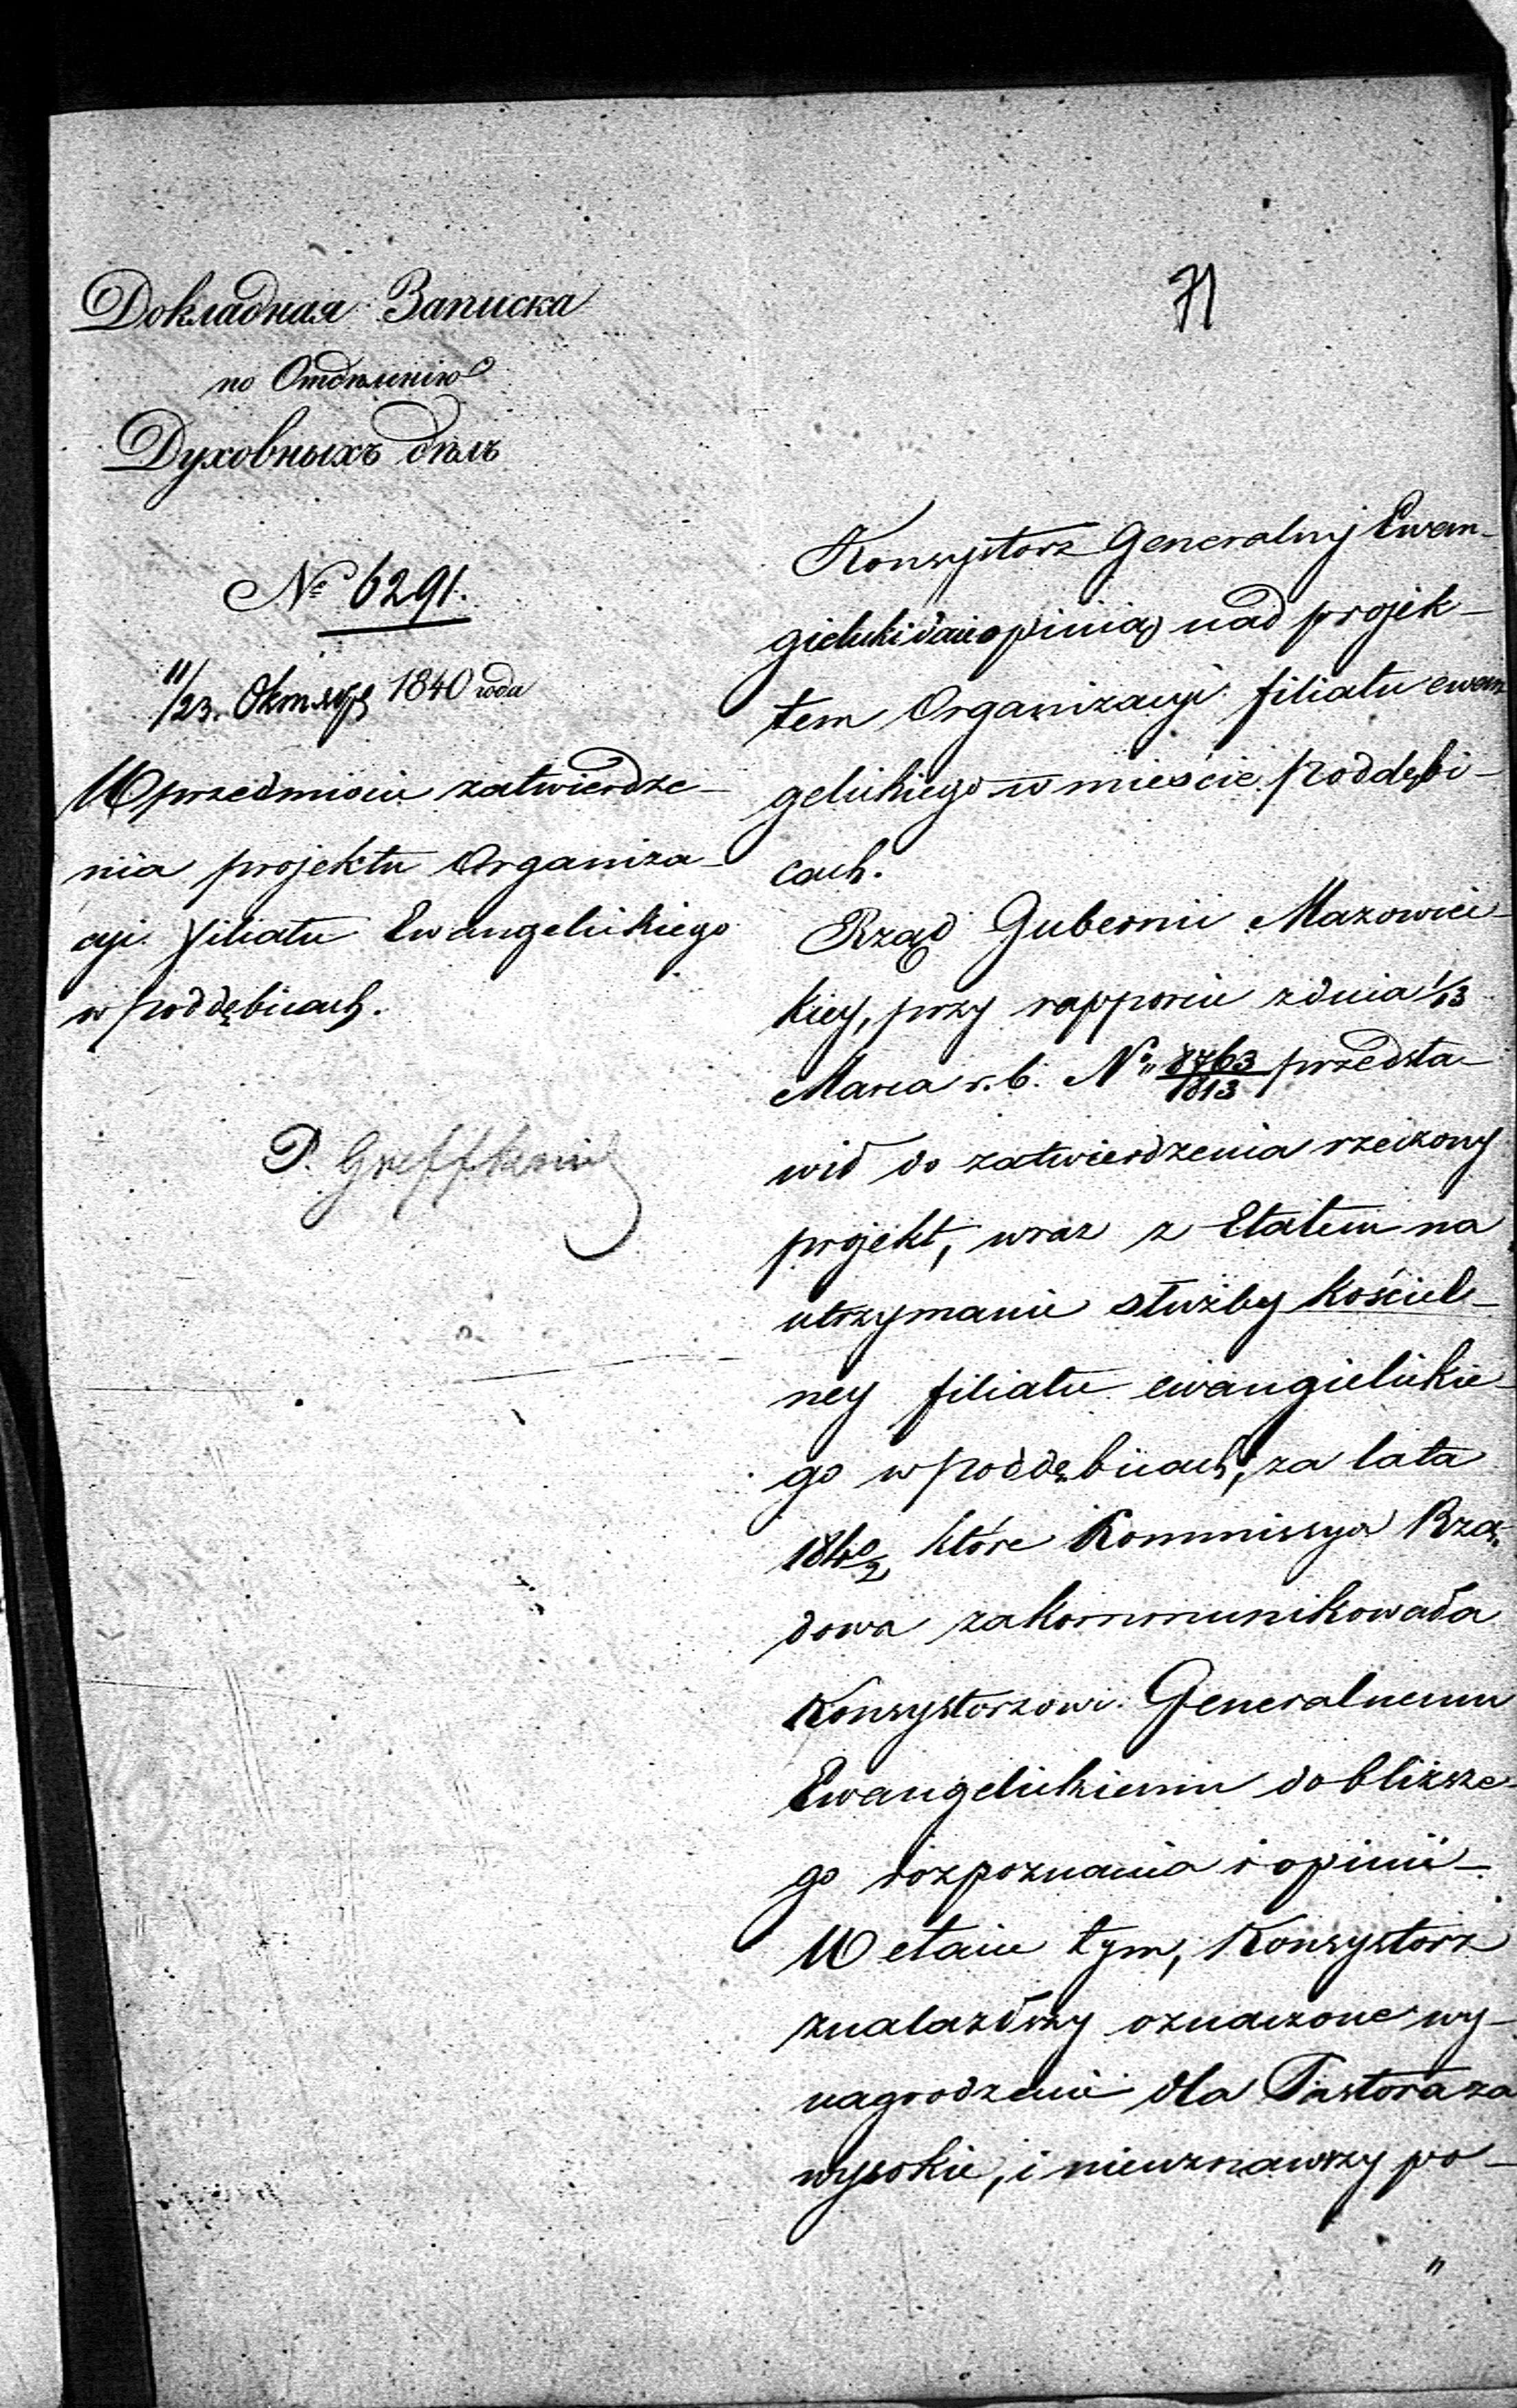 71
Докладная Записка
по Отдѣленію
Духовныхъ дѣлъ
№ 6291.
11/23. Октября 1840 года
W przedmiocie zatwierdze-
nia projektu Organiza-
cyi filiału Ewangelickiego
w Poddębicach.
P.
Konsystorz Generalny Ewan-
gielicki daie opinią nad projek-
tem Organizacyi filiału ewan-
gelickiego w mieście Poddębi-
cach.
Rząd Gubernii Mazowiec-
kiey, przy rapporcie z dnia 1/13
Marca r. b. № 8763/1813 przedsta-
wił do zatwierdzenia rzeczony
projekt, wraz z Etatem na
utrzymanie służby Kościel-
ney filiału ewangielickie-
go w Poddębicach, za lata
1840/2, które Kommissya Rzą-
dowa zakommunikowała
Konsystorzowi Generalnemu
Ewangelickiemu do bliższe-
go rozpoznania i opinii -
W etacie tym, Konsystorz
znalazłszy oznaczone wy-
nagrodzenie dla Pastora za
wysokie, i nieuznawszy po-
"